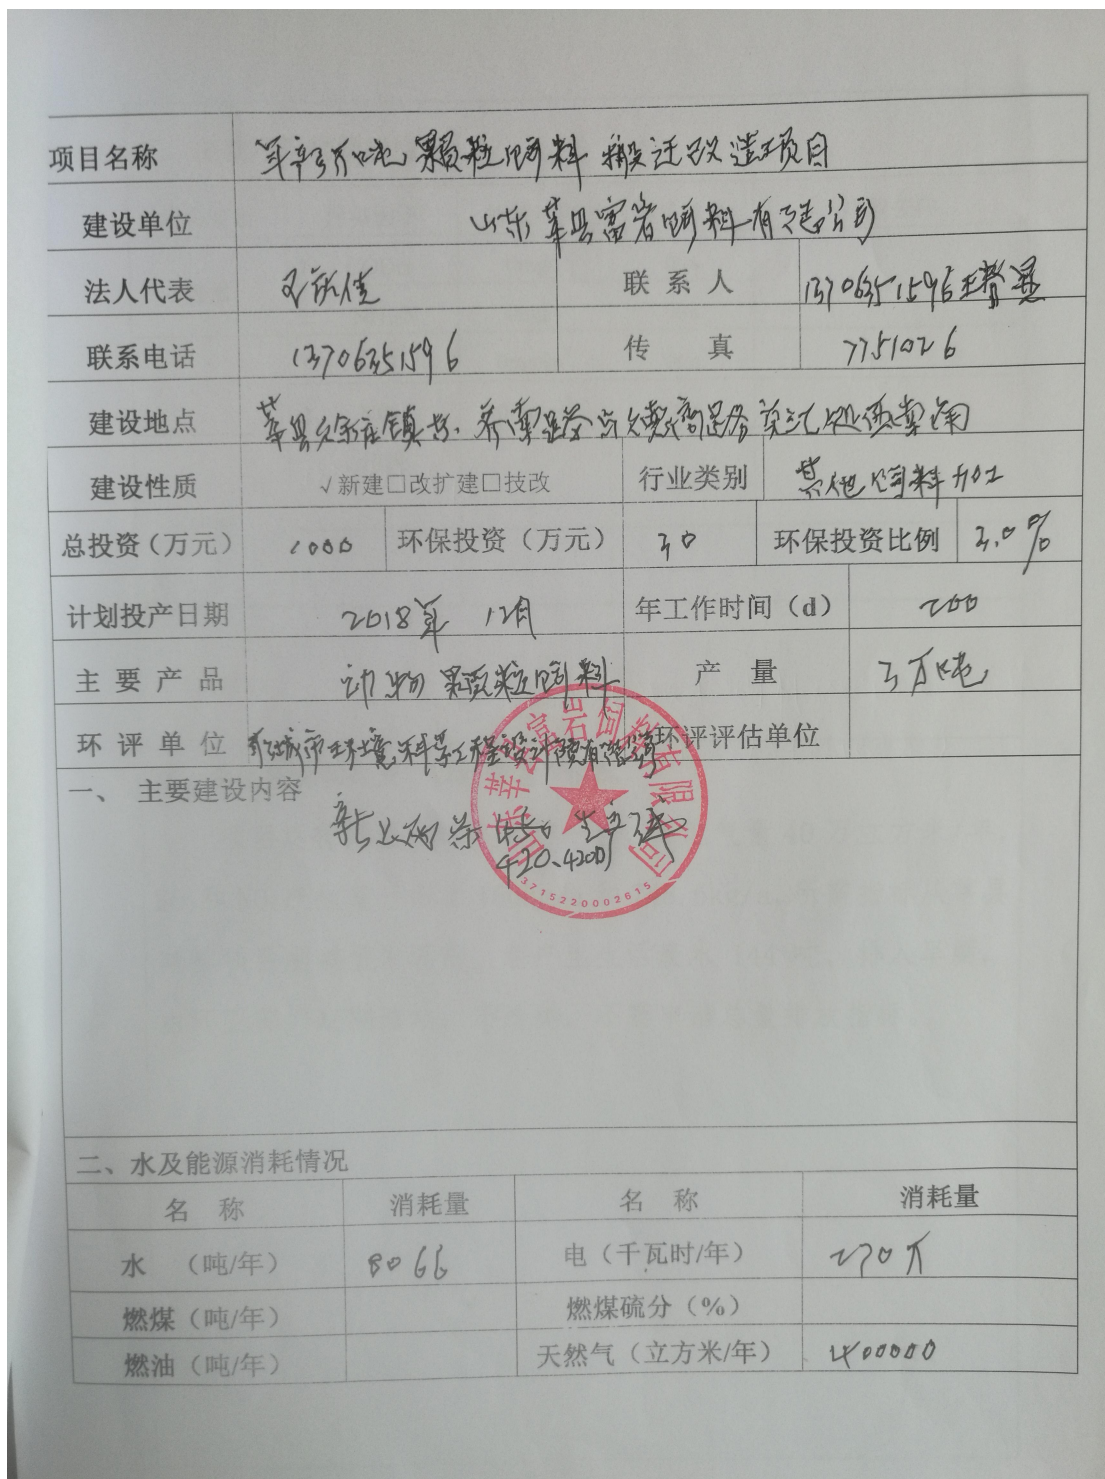 项目名称 年产3万吨颗粒饲料搬迁改造项目
建设单位 山东莘县富岩饲料有限公司
法人代表 联系人 13706351596王
联系电话 13706351596 传真 7751026
建设地点 莘县
建设性质 √新建□改扩建□技改 行业类别 其他饲料加工
总投资（万元） 1000 环保投资（万元） 30 环保投资比例 3.0%
计划投产日期 2018年 12月 年工作时间（d） 200
主要产品 动物颗粒饲料 产量 3万吨
环评单位 环评评估单位
一、 主要建设内容
420、420D
山东莘县富岩饲料有限公司
3715220002615
二、水及能源消耗情况
名称 消耗量 名称 消耗量
水 （吨/年） 8066 电（千瓦时/年） 270万
燃煤（吨/年） 燃煤硫分（%）
燃油（吨/年） 天然气（立方米/年） 400000